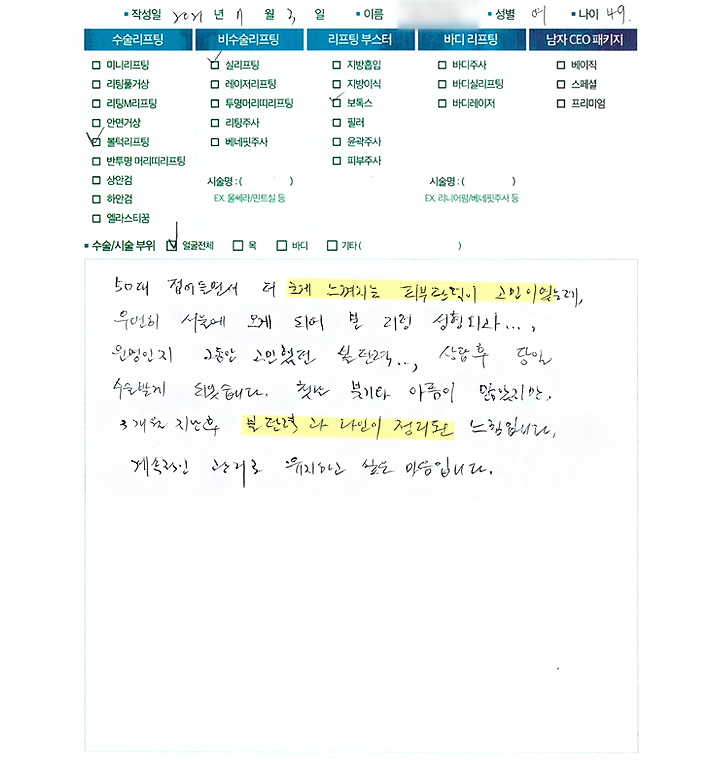 작성일 2021 년 11 월 3 일 이름 성별 여 나이 49.
수술리프팅 비수술리프팅 리프팅 부스터 바디 리프팅 남자 CEO 패키지
미니리프팅 실리프팅 지방흡입 바디주사 베이직
리팅풀거상 레이저리프팅 지방이식 바디실리프팅 스페셜
리팅M리프팅 투명머리띠리프팅 보톡스 바디레이저 프리미엄
안면거상 리팅주사 필러
볼턱리프팅 베네핏주사 윤곽주사
반투명 머리띠리프팅 피부주사
상안검 시술명 : ( ) 시술명 : ( )
하안검 EX. 울쎄라/민트실 등 EX. 리니어펌/베네핏주사 등
엘라스티꿈
수술/시술 부위 얼굴전체 목 바디 기타 ( )
50대 접어들면서 더 크게 느껴지는 피부탄력이 고민이였는데,
우연히 서울에 오게 되어 볼 리팅 성형외과...,
운명인지 그동안 고민했던 볼탄력..., 상담 후 당일
수술받게 되었습니다. 첫날 붓기와 아픔이 많았지만,
3개월 지난후 볼탄력과 라인이 정리된 느낌입니다.
계속적인 관리로 유지하고 싶은 마음입니다.